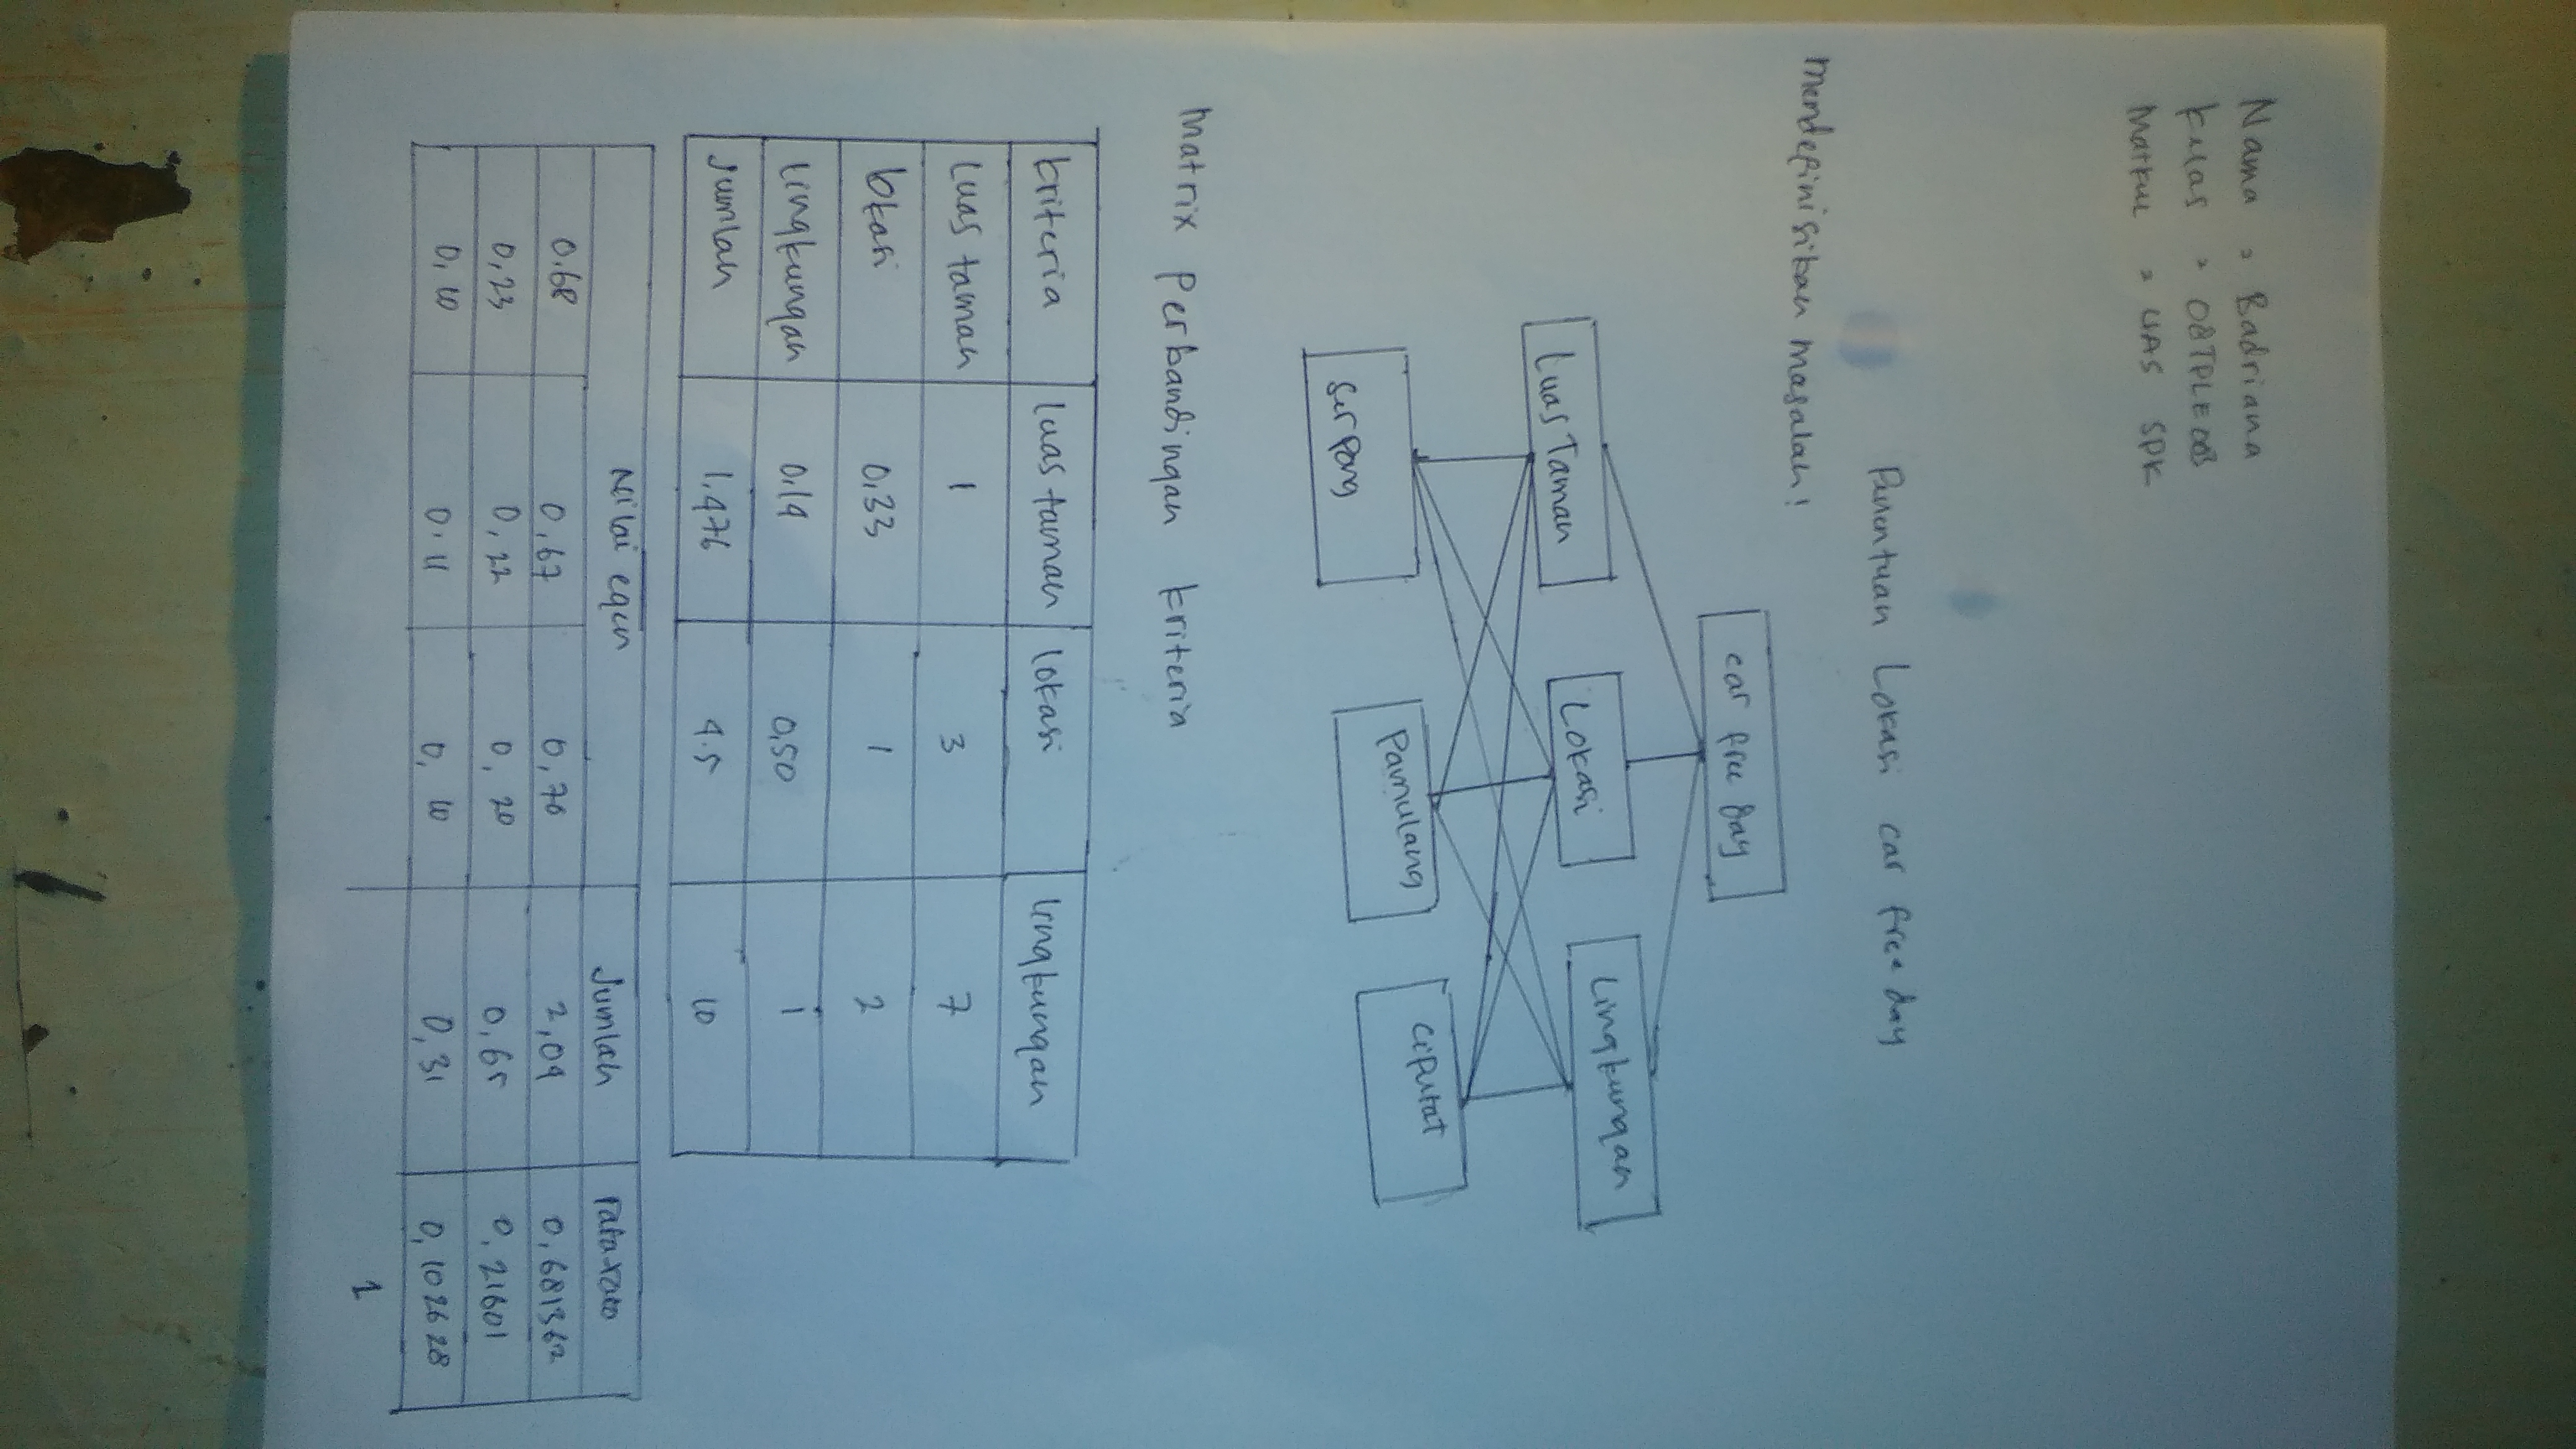 Nama = Badriana
Kelas = 08TPLE008
Matkul = UAS SPK
Penentuan Lokasi car free day
Mendefinisikan masalah!
car free day
Luas Taman Lokasi Lingkungan
Serpong Pamulang Ciputat
Matrix Perbandingan kriteria
kriteria luas taman lokasi lingkungan
luas taman 1 3 7
lokasi 0,33 1 2
lingkungan 0,14 0,50 1
Jumlah 1,476 4.5 10
Nilai eigen Jumlah rata-rata
0,68 0,67 0,70 2,04 0,681362
0,23 0,22 0,20 0,65 0,21601
0,10 0,11 0,10 0,31 0,102628
1